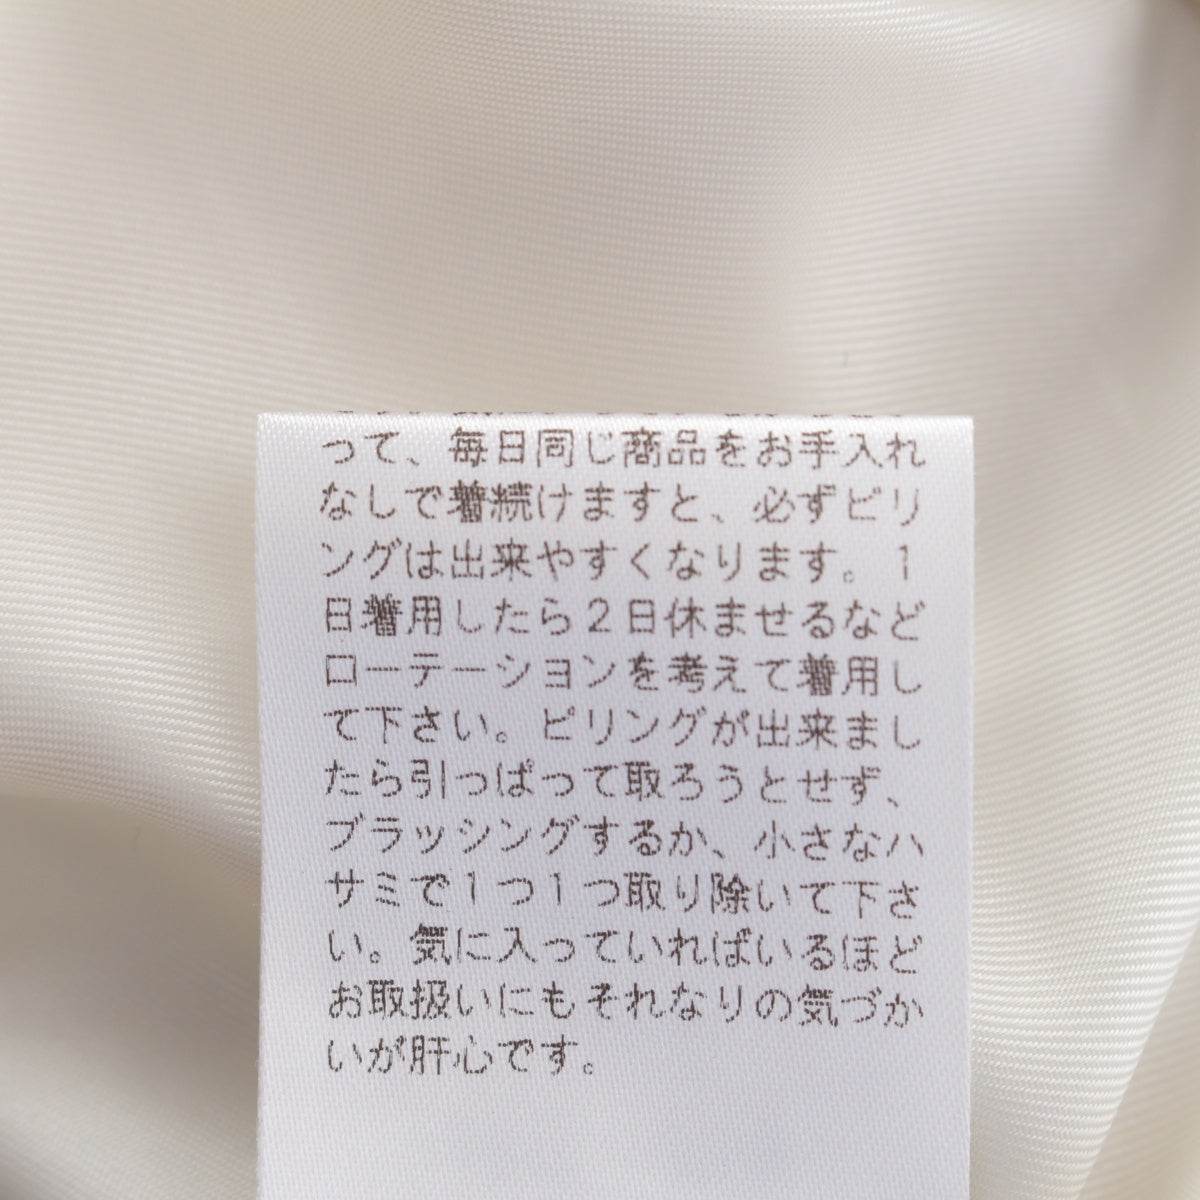 って、毎日同じ商品をお手入れ
なしで着続けますと、必ずピリ
ングは出来やすくなります。１
日着用したら２日休ませるなど
ローテーションを考えて着用し
て下さい。ピリングが出来まし
たら引っぱって取ろうとせず、
ブラッシングするか、小さなハ
サミで１つ１つ取り除いて下さ
い。気に入っていればいるほど
お取扱いにもそれなりの気づか
いが肝心です。